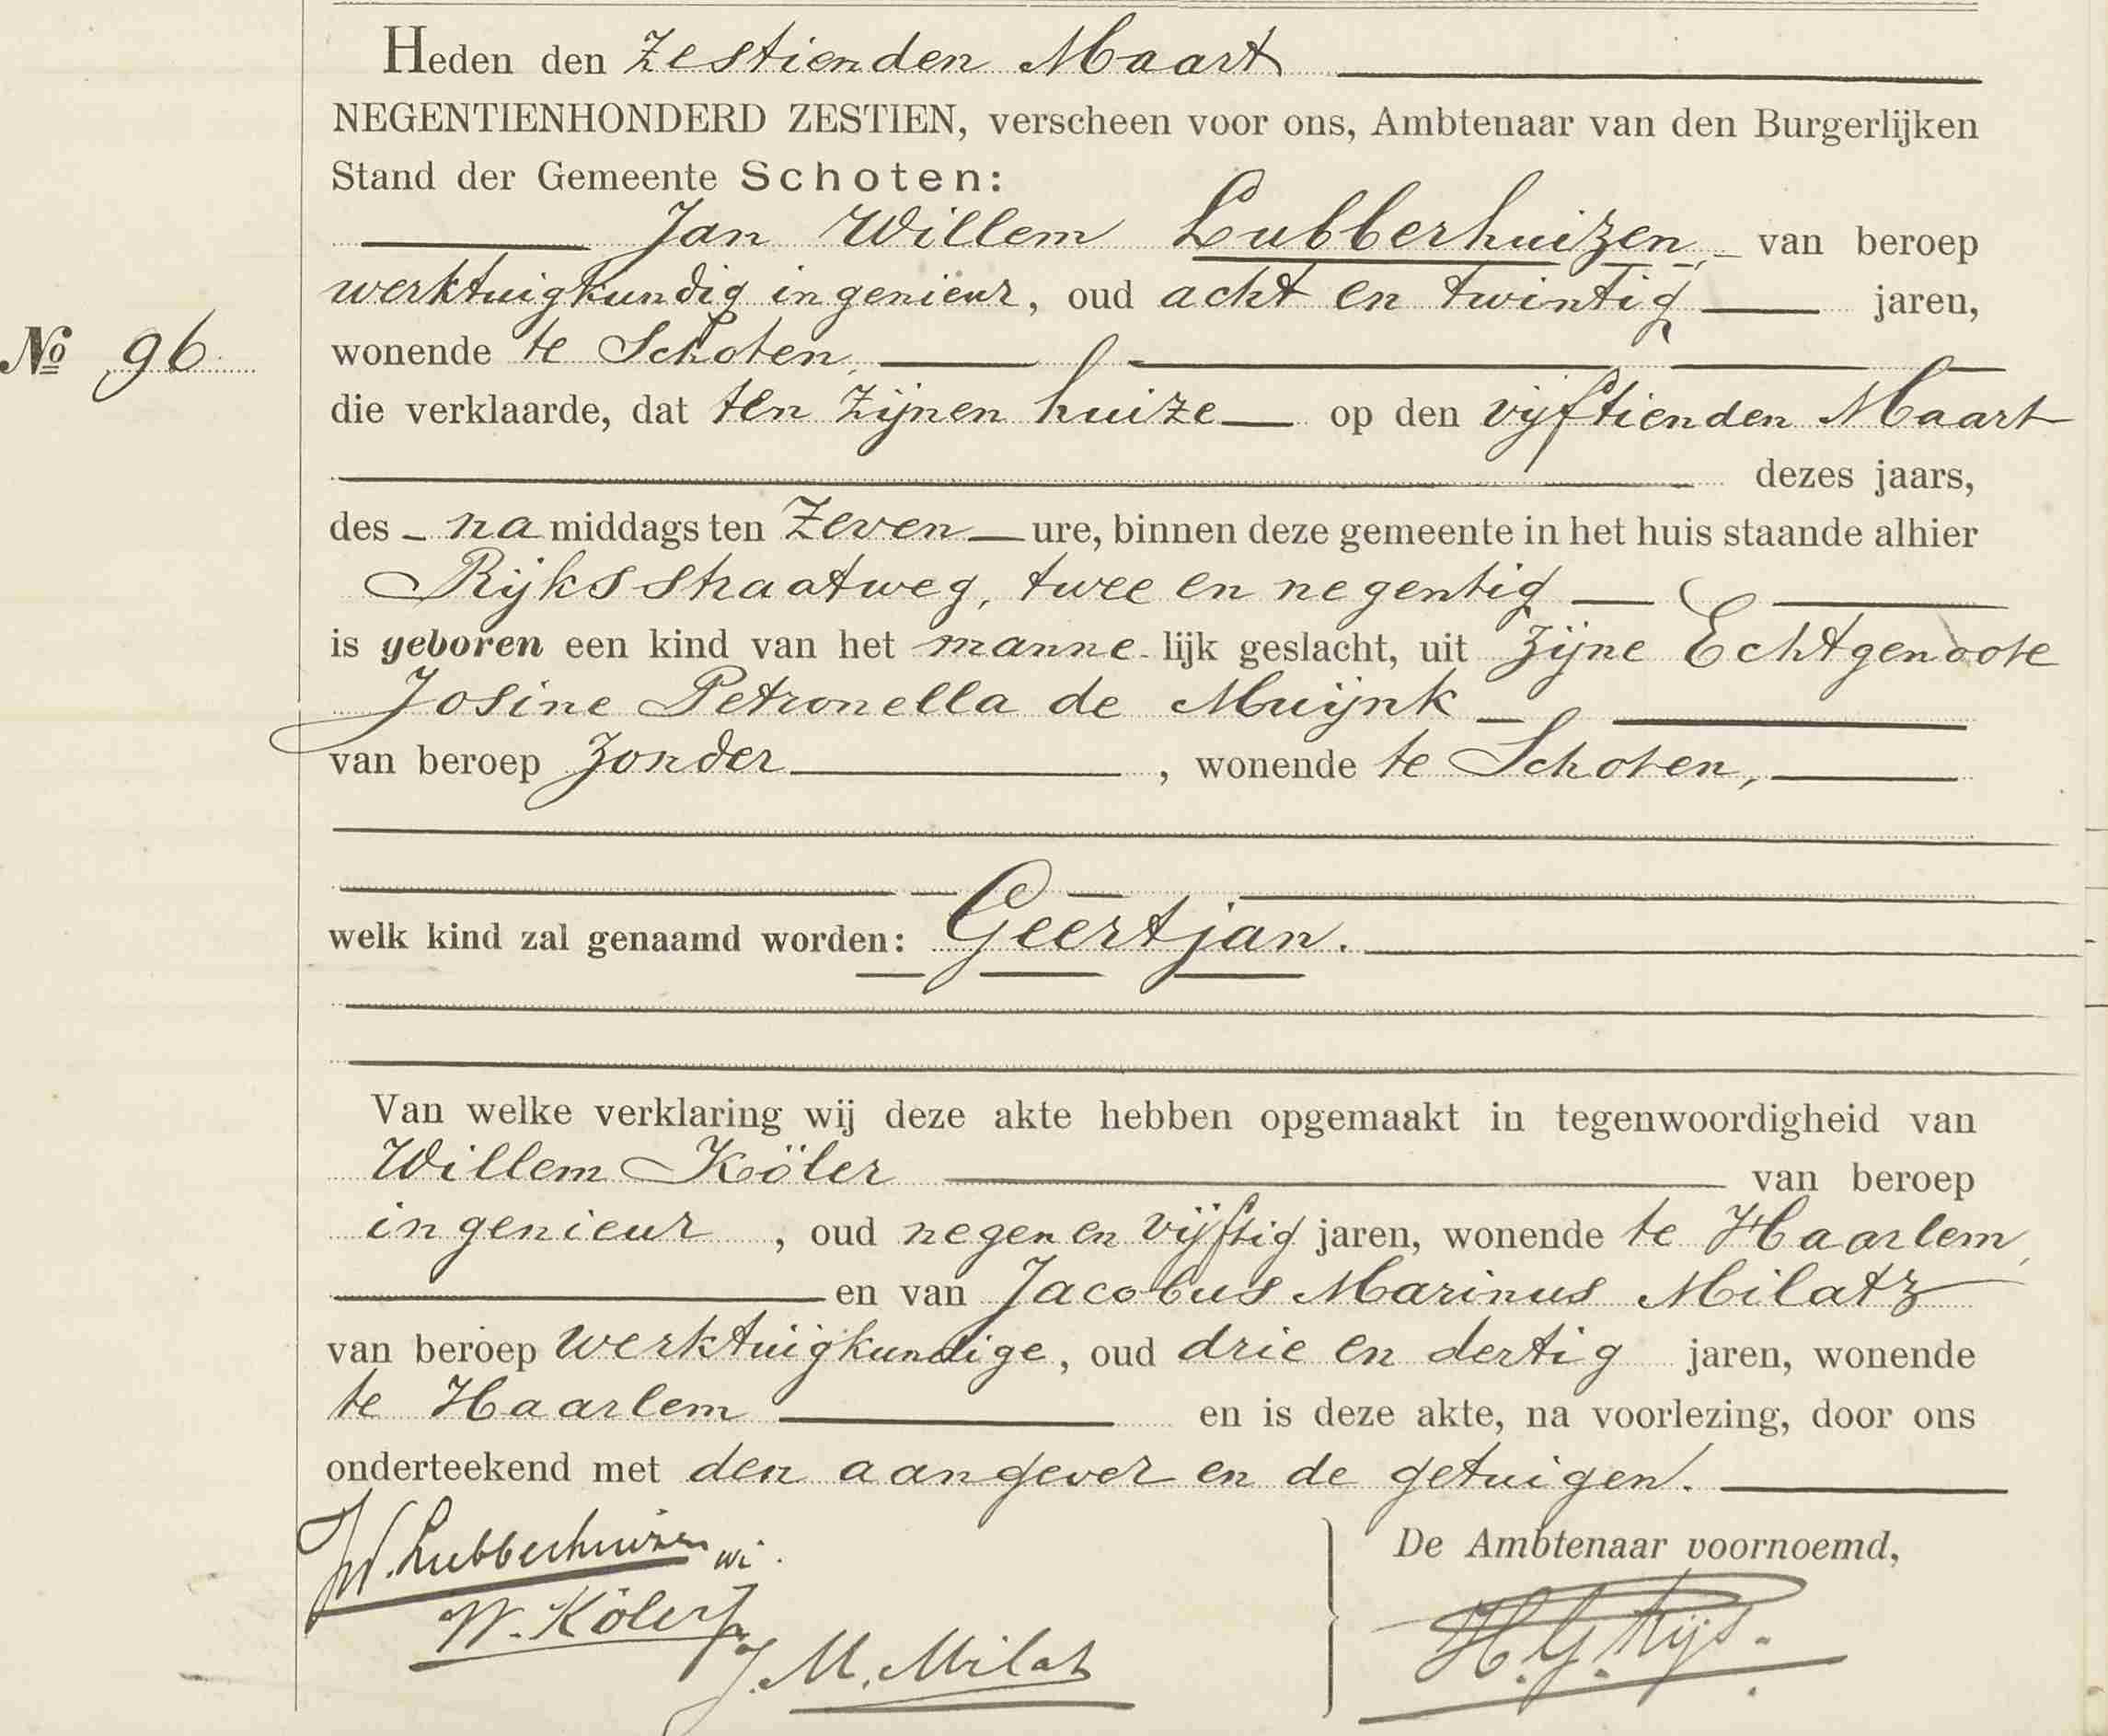 Heden den Zestienden Maart
NEGENTIENHONDERD ZESTIEN, verscheen voor ons, Ambtenaar van den Burgerlijken
Stand der Gemeente Schoten:
Jan Willem Lubberhuizen, van beroep
werktuigkundig ingenieur, oud acht en twintig jaren,
No 96
wonende te Schoten,
die verklaarde, dat ten zijnen huize op den vijftienden Maart
dezes jaars,
des namiddags ten Zeven ure, binnen deze gemeente in het huis staande alhier
Rijksstraatweg, twee en negentig
is geboren een kind van het mannelijk geslacht, uit zijne Echtgenoote
Josine Petronella de Muijnk
van beroep zonder, wonende te Schoten,
welk kind zal genaamd worden: Geertjan.
Van welke verklaring wij deze akte hebben opgemaakt in tegenwoordigheid van
Willem Köler van beroep
ingenieur, oud negen en vijftig jaren, wonende te Haarlem,
en van Jacobus Marinus Milatz
van beroep werktuigkundige, oud drie en dertig jaren, wonende
te Haarlem en is deze akte, na voorlezing, door ons
onderteekend met den aangever en de getuigen.
De Ambtenaar voornoemd,
JW. Lubberhuizen wi.
W. Köler
J. M. Milatz